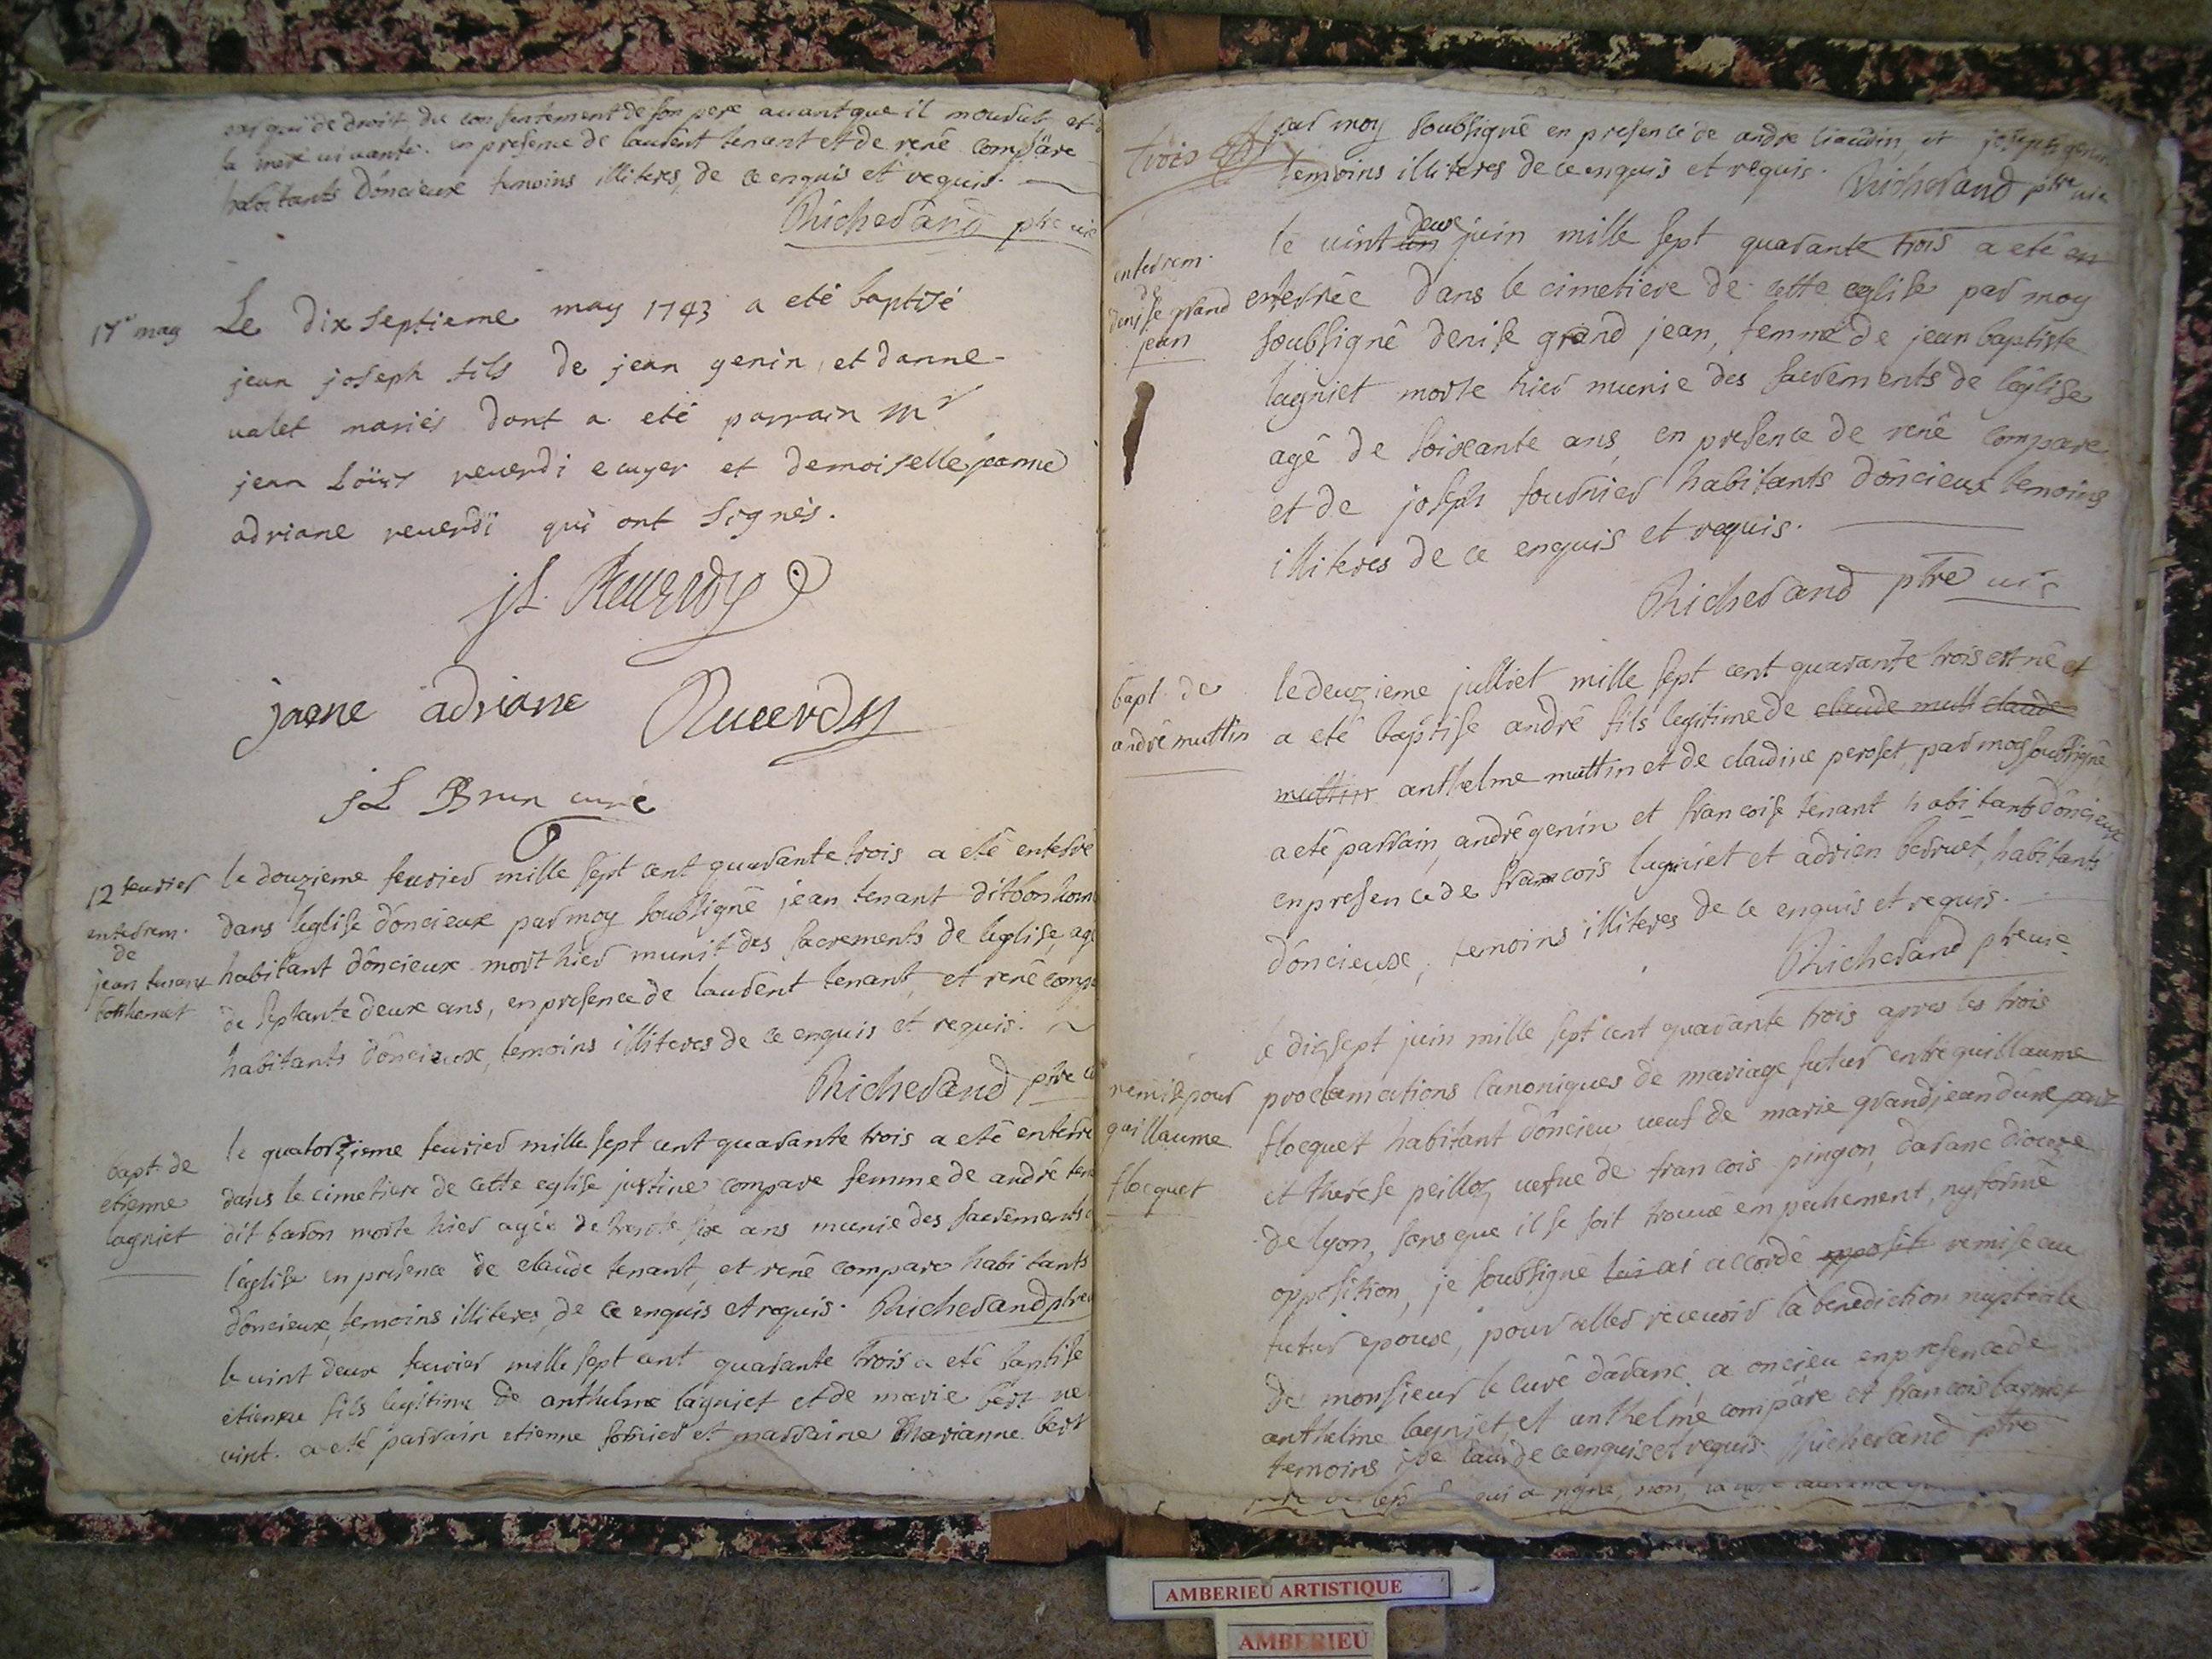 par qui de droit, du consentement de son pere auant que il mourut, et
la mere uiuante. en presence de laudent tenant et de renê compâre
habitants d'oncieux temoins illiteres, de ce enquis et requis.
Richerand ptre uic
17e may
Le dix septieme may 1743 a eté baptizé
jean joseph fils de jean genin, et danne
ualet mariés dont a eté parrain Mr
jean Loüis reuerdi ecuyer et demoiselle jeanne
adriane reuerdi qui ont signés.
jL. Reuerdy
jaene adriane Reuerdy
jL Brun curé
12 feurier
enterrem.
de
jean tenant
bonhomet
le douzieme feurier mille sept cent quarante trois a etê enterré
dans leglise d'oncieux par moy soubsignê jean tenant dit bonhom
habitant d'oncieux mort hier munit des sacrements de leglise, agé
de septante deux ans, en presence de laurent tenant, et renê compa
habitants d'oncieux, temoins illiteres de ce enquis et requis.
Richerand ptre
bapt. de
etienne
lagniet
le quatorzieme feurier mille sept cent quarante trois a etê enterré
dans le cimetiere de cette eglise justine compare femme de andré ten
dit baron morte hier agée de trente six ans munie des sacrements
l'eglise en presence de claude tenant, et renê compare habitants
d'oncieux, temoins illiteres, de ce enquis et requis. Richerand ptre
le uint deux feurier mille sept cent quarante trois a etê baptise
etienne fils legitime de anthelme lagniet et de marie bert ne
uint. a eté parrain etienne fornier et marraine Marianne bert
trois
par moy soubsignê en presence de andre liaudin, et joseph genin
temoins illiteres de ce enquis et requis. Richerand ptre uic
enterrem.
de
denise grand
jean
le uint un deux juin mille sept quarante trois a etê en
enterrée dans le cimetiere de cette eglise par moy
soubsignê denise grand jean, femme de jean baptiste
lagniet morte hier munie des sacrements de l'eglise
agê de soixante ans, en presence de renê compare
et de joseph fournier habitants d'oncieux temoins
illiteres de ce enquis et requis.
Richerand ptre uic
bapt. de
andrê muttin
le deuzieme julliet mille sept cent quarante trois est nê et
a etê baptise andrê fils legitime de claude mutt claude
muttin anthelme muttin et de claudine perset, par moy soubsignê
a etê parrain, andrê genin et francoise tenant habitants d'oncieux
en presence de francois lagniet et adrien berruet, habitants
d'oncieux, temoins illiteres de ce enquis et requis.
Richerand ptre uic
remise pour
guillaume
flocquet
le dixsept juin mille sept cent quarante trois apres les trois
proclamations canoniques de mariage futur entre guillaume
flocquet habitant d'oncieu ueuf de marie grandjean dune part
et therese peilloz ueufue de francois pingon, d'aranc diocese
de lyon, sans que il se soit trouuê empechement, ny formê
opposition, je soubsignê lui ai accordé opposit remise au
futur epoux, pour aller receuoir la benediction nuptiale
de monsieur le curê d'aranc, a oncieu en presence de
anthelme lagniet, et anthelme compâre et francois lagniet
temoins de ce enquis et requis. Richerand ptre
AMBERIEU ARTISTIQUE
AMBERIEU